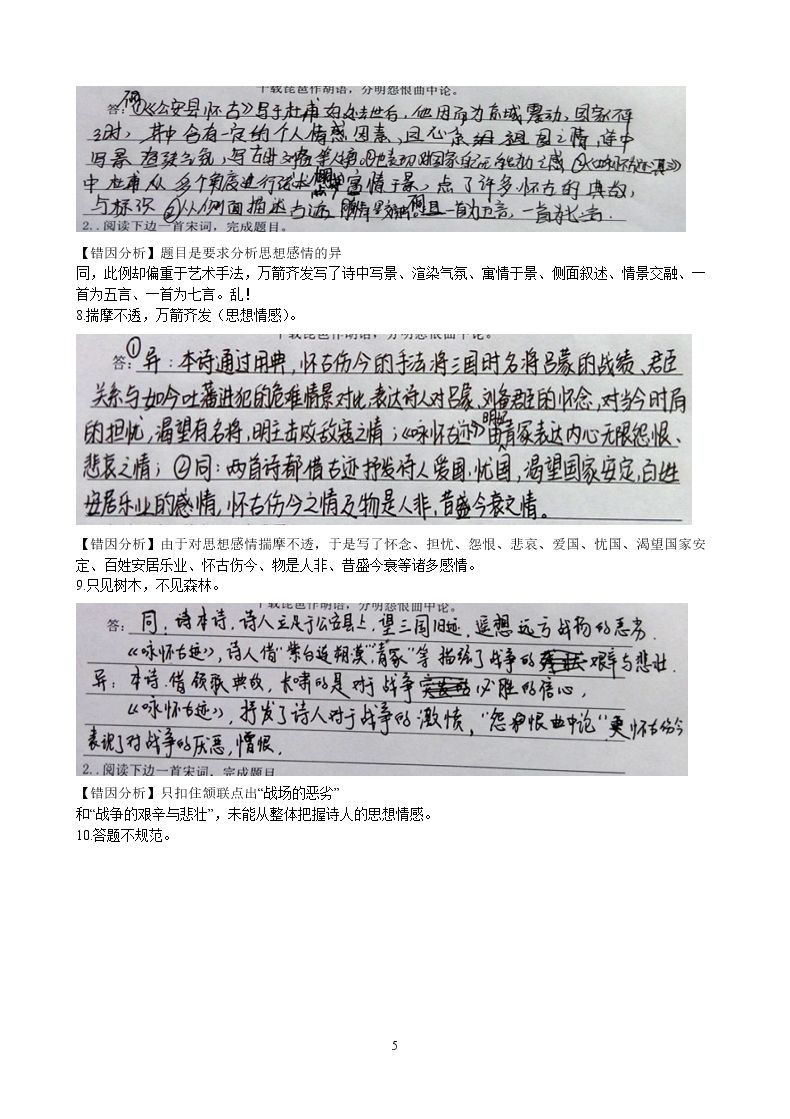 下载琵琶作胡语，分明怨恨曲中论。
答：同①《公安县怀古》写于杜甫
其中含有一定的个人情感因素，
2..阅读下边一首宋词，完成题目。
【错因分析】题目是要求分析思想感情的异
同，此例却偏重于艺术手法，万箭齐发写了诗中写景、渲染气氛、寓情于景、侧面叙述、情景交融、一
首为五言、一首为七言。乱！
8.揣摩不透，万箭齐发（思想情感）。
下载琵琶作胡语，分明怨恨曲中论。
答：①异：本诗通过用典，怀古伤今的手法将三国时名将吕蒙的战绩、君臣
关系与如今吐蕃进犯的危难情景对比，表达诗人对吕蒙、刘备君臣的怀念，对当今时局
的担忧，渴望有名将，明主击败敌寇之情；《咏怀古迹》由明妃青冢表达内心无限怨恨、
悲哀之情；②同：两首诗都借古迹抒发诗人爱国，忧国，渴望国家安定，百姓
安居乐业的感情，怀古伤今之情及物是人非，昔盛今衰之情。
【错因分析】由于对思想感情揣摩不透，于是写了怀念、担忧、怨恨、悲哀、爱国、忧国、渴望国家安
定、百姓安居乐业、怀古伤今、物是人非、昔盛今衰等诸多感情。
9.只见树木，不见森林。
下载琵琶作胡语，分明怨恨曲中论。
答：同：诗本诗，诗人立足于公安县上，望三国旧迹，遥想远方战场的恶劣．
《咏怀古迹》，诗人借“紫台连朔漠”，“青冢”等描绘了战争的艰辛与悲壮．
异：本诗借颔联典故，长啸的是对于战争必胜的信心，
《咏怀古迹》，抒发了诗人对于战争的激愤，“怨恨曲中论”更怀古伤今
表现了对战争的厌恶，憎恨．
2..阅读下边一首宋词，完成题目
【错因分析】只扣住颔联点出“战场的恶劣”
和“战争的艰辛与悲壮”，未能从整体把握诗人的思想情感。
10.答题不规范。
5